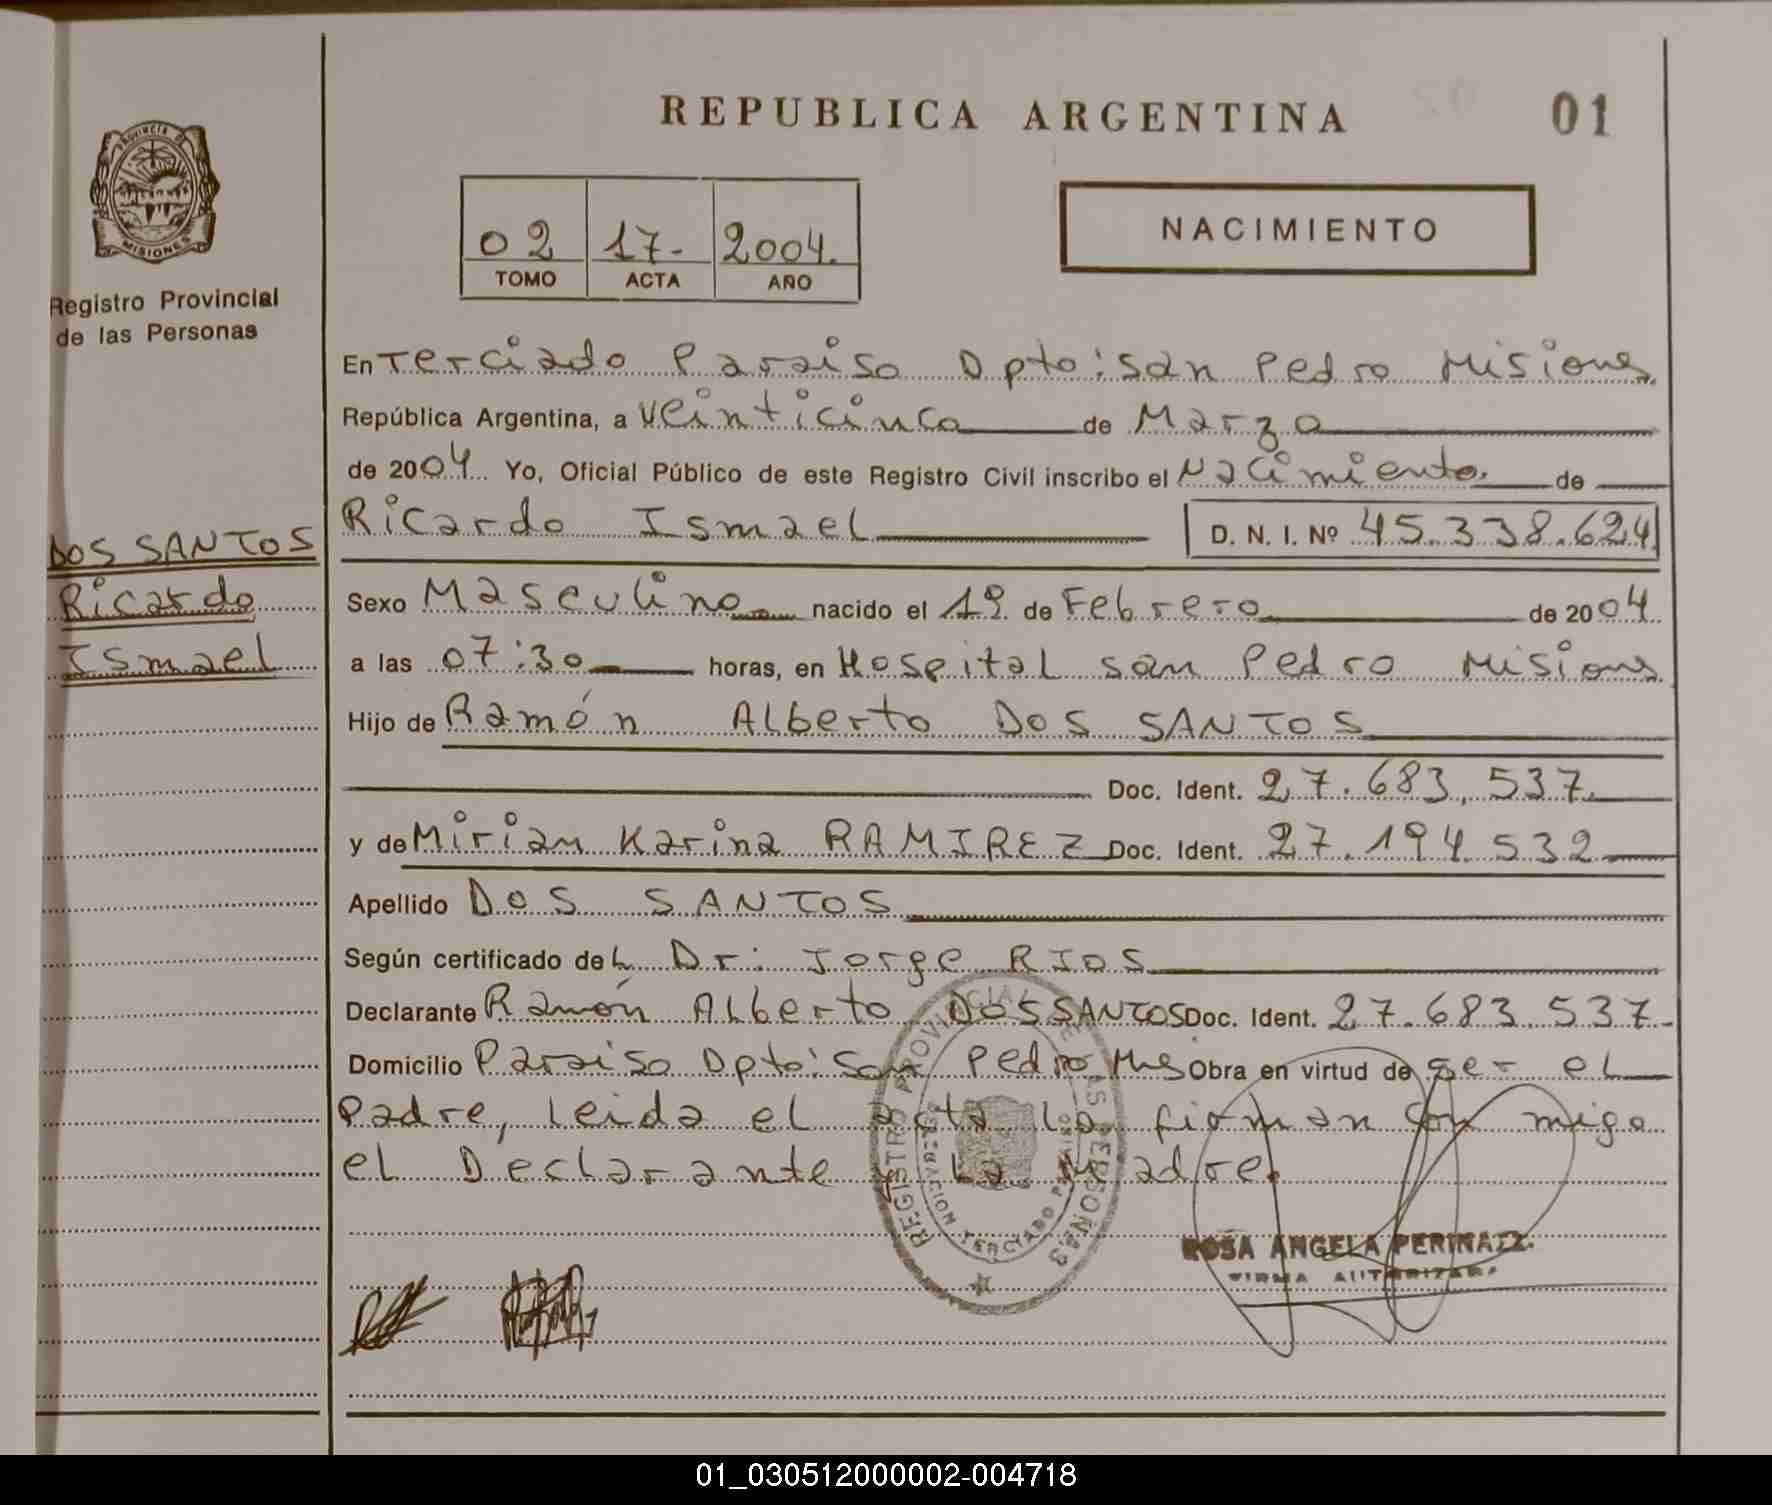 REPUBLICA ARGENTINA
01
PROVINCIA DE
MISIONES
Registro Provincial
de las Personas
02 17- 2004.
TOMO ACTA AÑO
NACIMIENTO
En Terciado Paraiso Dpto: San Pedro Misiones
República Argentina, a Veinticinco de Marzo
de 2004. Yo, Oficial Público de este Registro Civil inscribo el Nacimiento. de
Ricardo Ismael D. N. I. Nº 45.338.624
DOS SANTOS
Ricardo
Ismael
Sexo Masculino nacido el 19 de Febrero de 2004
a las 07:30 horas, en Hospital San Pedro Misiones
Hijo de Ramón Alberto DOS SANTOS
Doc. Ident. 27.683.537.
y de Mirian Karina RAMIREZ Doc. Ident. 27.194.532
Apellido DOS SANTOS
Según certificado del Dr: Jorge RIOS
Declarante Ramón Alberto DOS SANTOS Doc. Ident. 27.683.537.
Domicilio Paraiso Dpto: San Pedro Mns Obra en virtud de ser el
Padre, leida el acta la firman con migo
el Declarante y la Madre.
REGISTRO PROVINCIAL DE LAS PERSONAS
DELEGACION TERCIADO PARAISO
ROSA ANGELA PERINA
FIRMA AUTORIZADA
01_030512000002-004718